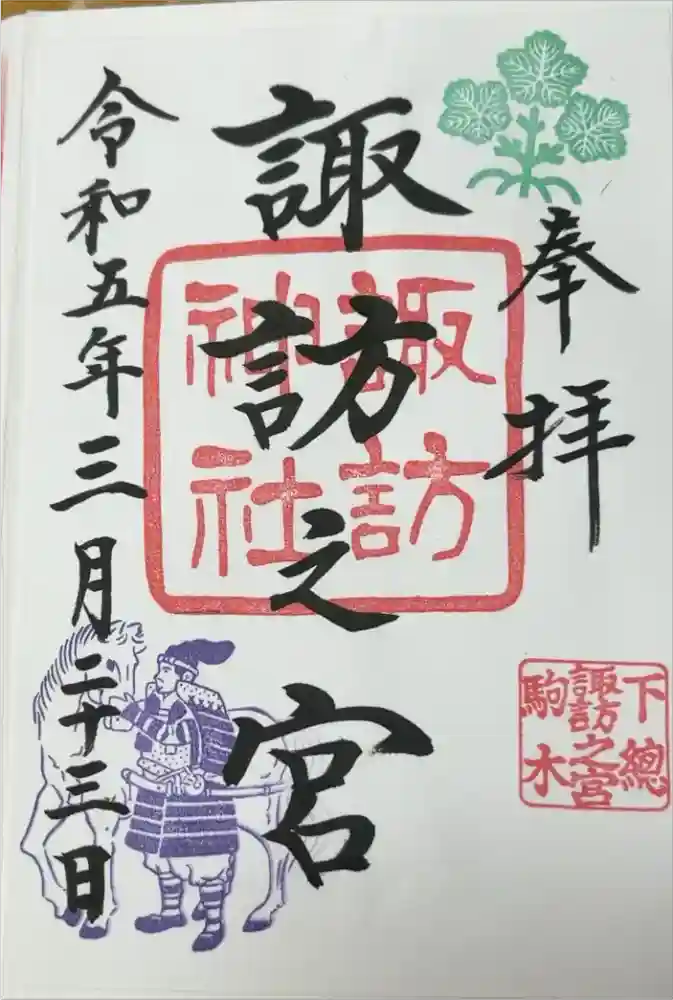 奉拝
諏訪之宮
令和五年三月二十三日
諏訪
神社
下總
諏訪之宮
駒木